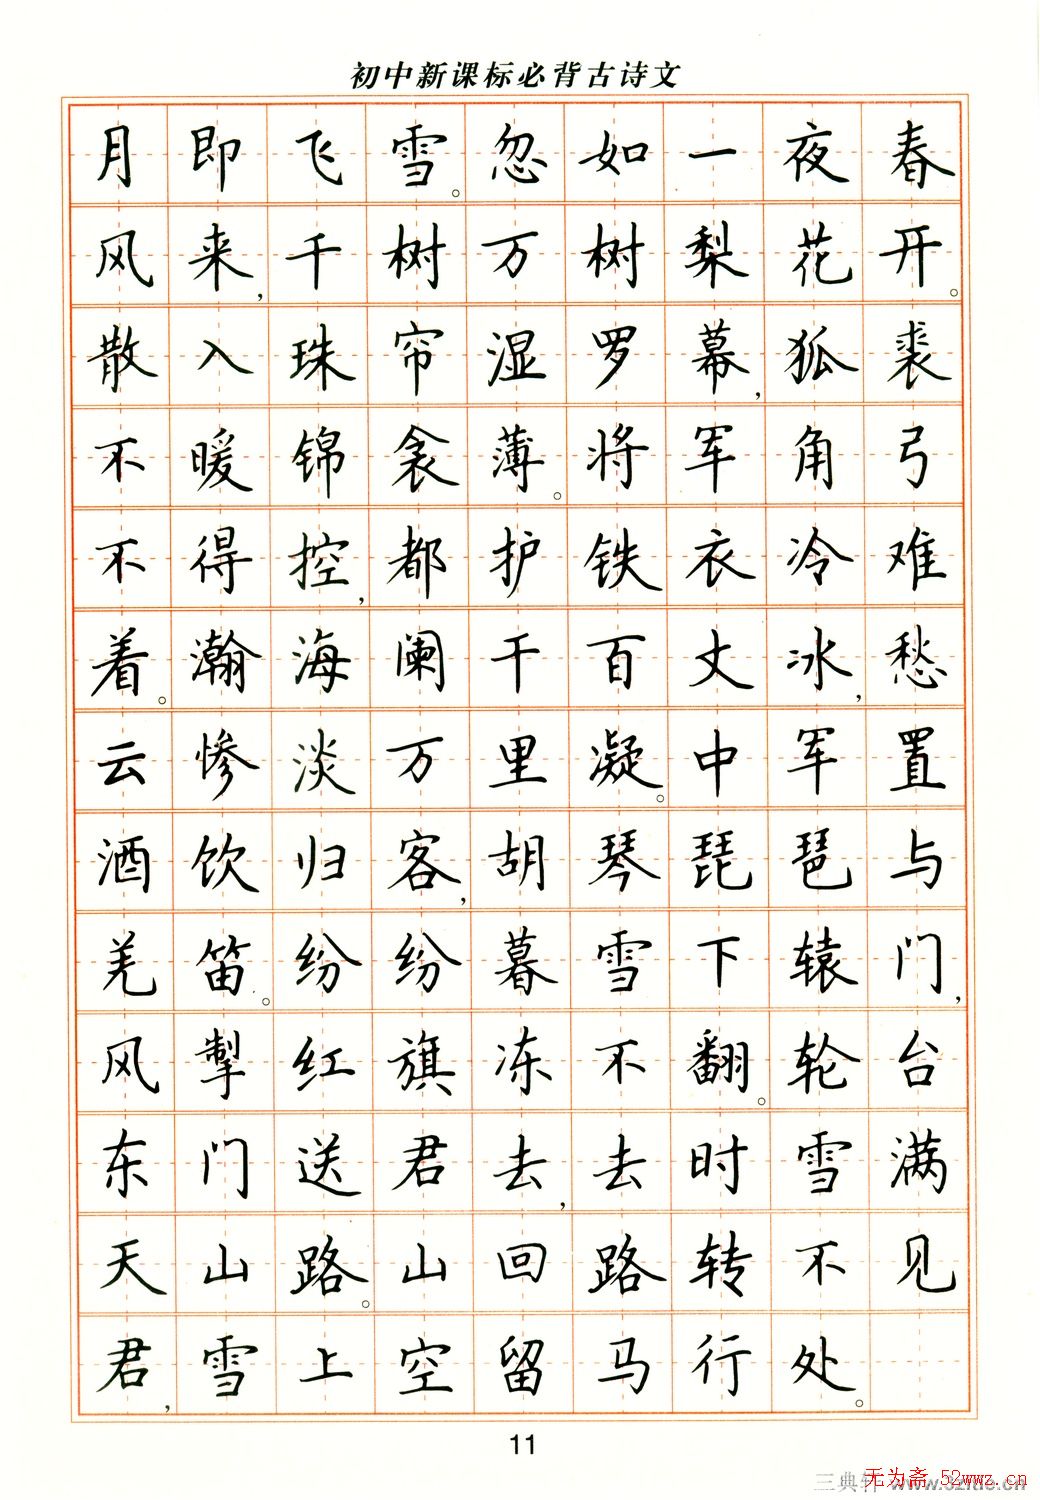 初中新课标必背古诗文
月即飞雪。忽如一夜春
风来,千树万树梨花开。
散入珠帘湿罗幕,狐裘
不暖锦衾薄。将军角弓
不得控,都护铁衣冷难
着。瀚海阑干百丈冰,愁
云惨淡万里凝。中军置
酒饮归客,胡琴琵琶与
羌笛。纷纷暮雪下辕门,
风掣红旗冻不翻。轮台
东门送君去,去时雪满
天山路。山回路转不见
君,雪上空留马行处。
11
无为斋 52wwz.cn
三典轩